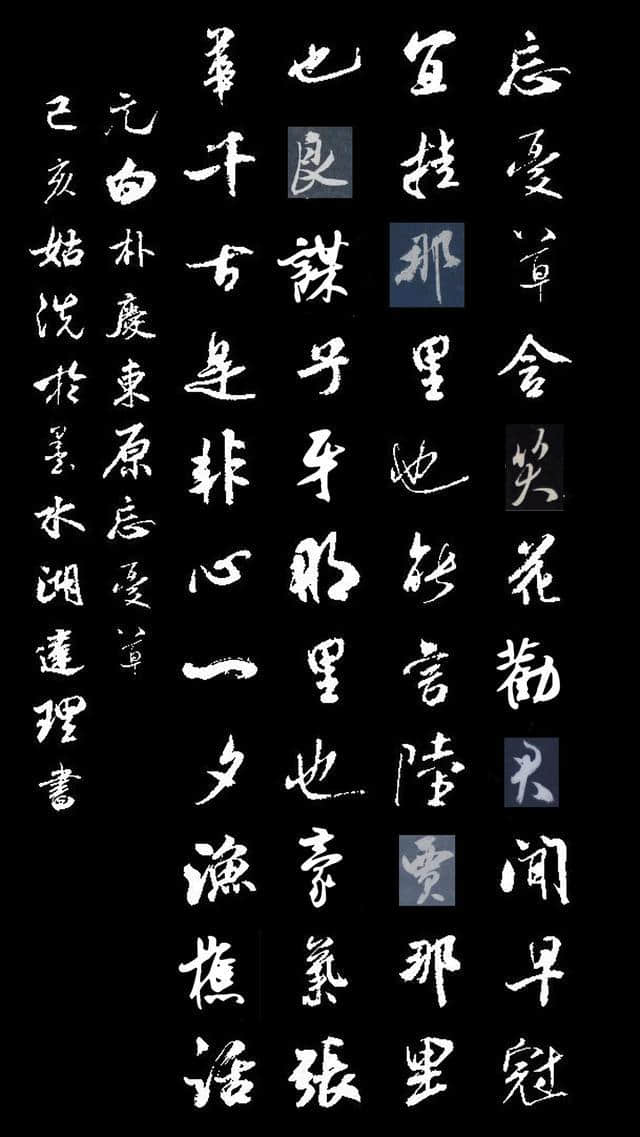 忘憂草含笑花勸君聞早冠
宜挂那里也能言陸賈那里
也良謀子牙那里也豪氣張
華千古是非心一夕漁樵話
元白朴慶東原忘憂草
己亥姑洗於墨水湖達理書